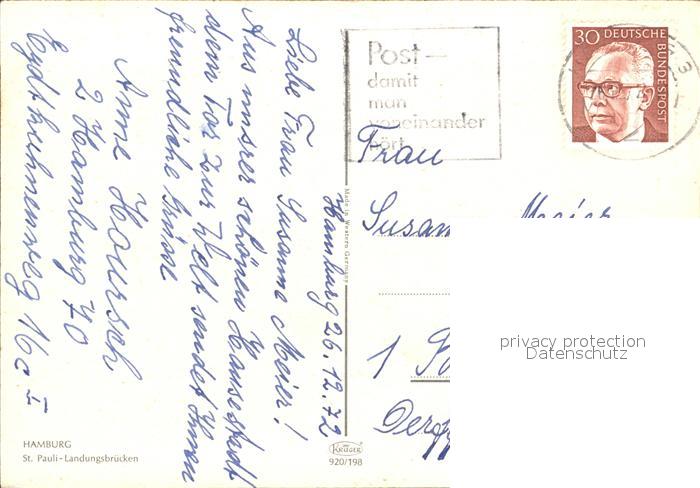 Hamburg 26.12.72
Liebe Frau Susanne Meier!
Aus unsrer schönen Hansestadt
dem Tor zur Welt sendet Ihnen
freundliche Grüsse
Anne
2 Hamburg 70
16c I
HAMBURG
St. Pauli-Landungsbrücken
Made in Western Germany
KRÜGER
920/198
Post –
damit
man
voneinander
hört
30 DEUTSCHE
BUNDESPOST
Frau
Meier
1
privacy protection
Datenschutz